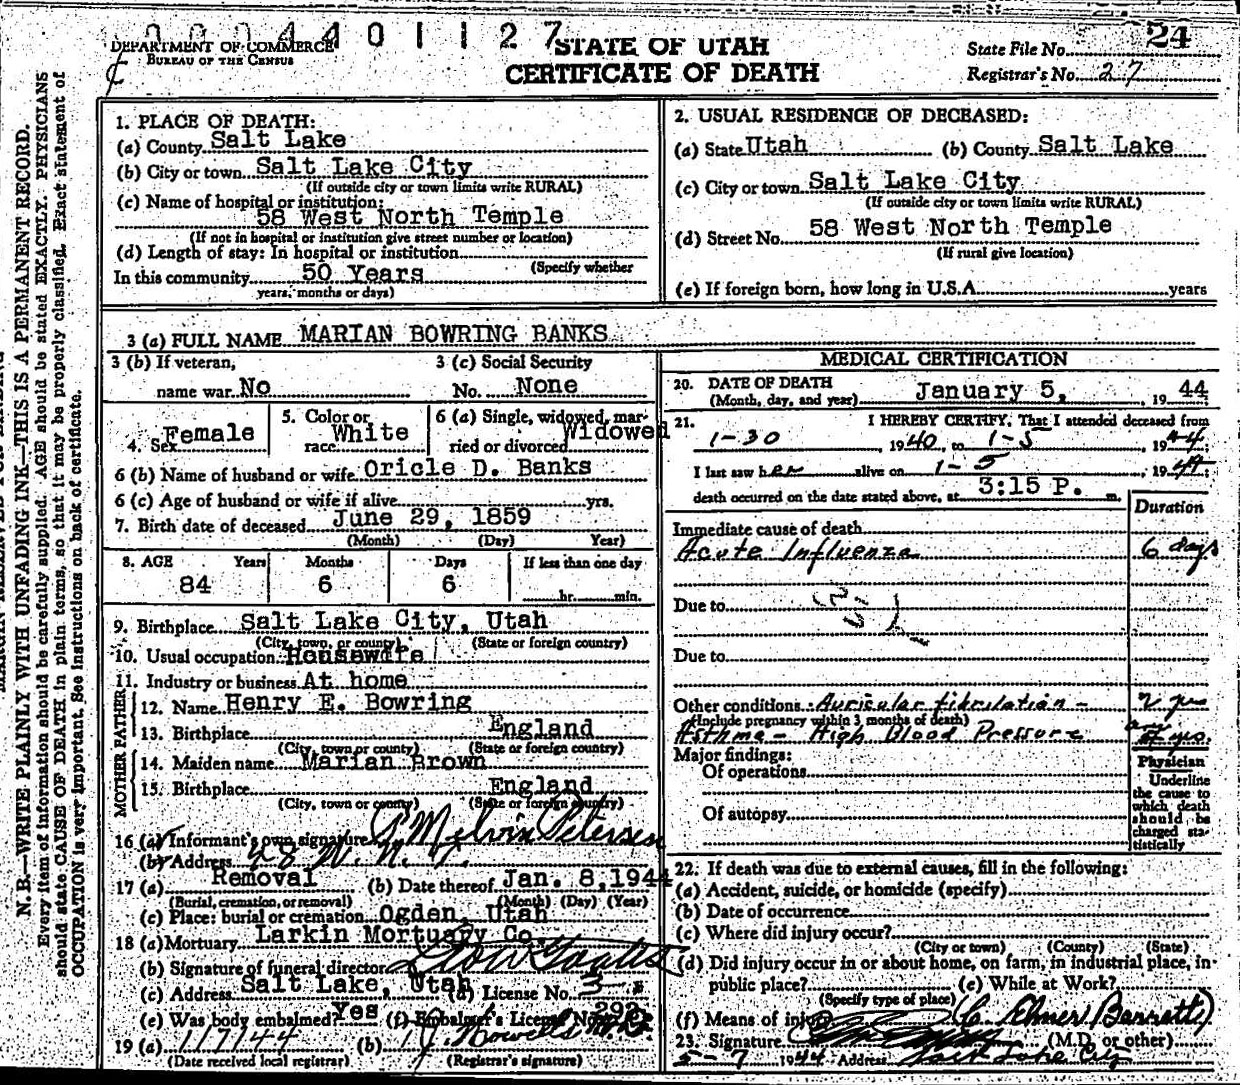 000440112 7
DEPARTMENT OF COMMERCE
BUREAU OF THE CENSUS
STATE OF UTAH
CERTIFICATE OF DEATH
State File No. 24
Registrar's No. 27
N. B.—WRITE PLAINLY WITH UNFADING INK—THIS IS A PERMANENT RECORD.
Every item of information should be carefully supplied. AGE should be stated EXACTLY. PHYSICIANS
should state CAUSE OF DEATH in plain terms, so that it may be properly classified. Exact statement of
OCCUPATION is very important. See instructions on back of certificate.
1. PLACE OF DEATH:
(a) County Salt Lake
(b) City or town Salt Lake City
(If outside city or town limits write RURAL)
(c) Name of hospital or institution:
58 West North Temple
(If not in hospital or institution give street number or location)
(d) Length of stay: In hospital or institution
(Specify whether
In this community 50 Years
years, months or days)
2. USUAL RESIDENCE OF DECEASED:
(a) State Utah (b) County Salt Lake
(c) City or town Salt Lake City
(If outside city or town limits write RURAL)
(d) Street No. 58 West North Temple
(If rural give location)
(e) If foreign born, how long in U.S.A. years
3 (a) FULL NAME MARIAN BOWRING BANKS
3 (b) If veteran, 3 (c) Social Security
name war No No. None
4. Sex Female 5. Color or race White 6 (a) Single, widowed, married or divorced Widowed
6 (b) Name of husband or wife Oricle D. Banks
6 (c) Age of husband or wife if alive yrs.
7. Birth date of deceased June 29, 1859
(Month) (Day) Year)
8. AGE Years Months Days If less than one day
84 6 6 hr. min.
9. Birthplace Salt Lake City, Utah
(City, town, or county) (State or foreign country)
10. Usual occupation Housewife
11. Industry or business At home
FATHER
12. Name Henry E. Bowring
13. Birthplace England
(City, town or county) (State or foreign country)
MOTHER
14. Maiden name Marian Brown
15. Birthplace England
(City, town or county) (State or foreign country)
16 (a) Informant's own signature P Melvin Petersen
(b) Address 48 W. N. T.
17 (a) Removal (b) Date thereof Jan. 8, 1944
(Burial, cremation, or removal) (Month) (Day) (Year)
(c) Place: burial or cremation Ogden, Utah
18 (a) Mortuary Larkin Mortuary Co.
(b) Signature of funeral director
(c) Address Salt Lake, Utah (d) License No. 3
(e) Was body embalmed? Yes (f) Embalmer's License No. 292
19 (a) 1/7/44 (b)
(Date received local registrar) (Registrar's signature)
MEDICAL CERTIFICATION
20. DATE OF DEATH
(Month, day, and year) January 5, 1944
21. I HEREBY CERTIFY, That I attended deceased from
1-30 1940, to 1-5 1944;
I last saw her alive on 1-5 1944;
death occurred on the date stated above, at 3:15 P. m.
Duration
Immediate cause of death
Acute Influenza 6 days
Due to
Due to
Other conditions Auricular fibrulation - 2 yrs
(Include pregnancy within 3 months of death)
Asthma - High Blood Pressure yrs.
Major findings:
Of operations
Of autopsy
Physician
Underline
the cause to
which death
should be
charged sta-
tistically
22. If death was due to external causes, fill in the following:
(a) Accident, suicide, or homicide (specify)
(b) Date of occurrence
(c) Where did injury occur?
(City or town) (County) (State)
(d) Did injury occur in or about home, on farm, in industrial place, in
public place? (e) While at Work?
(Specify type of place)
(f) Means of injury (C. Elmer Barrett)
23. Signature (M.D. or other)
5-7 1944 Address Salt Lake City